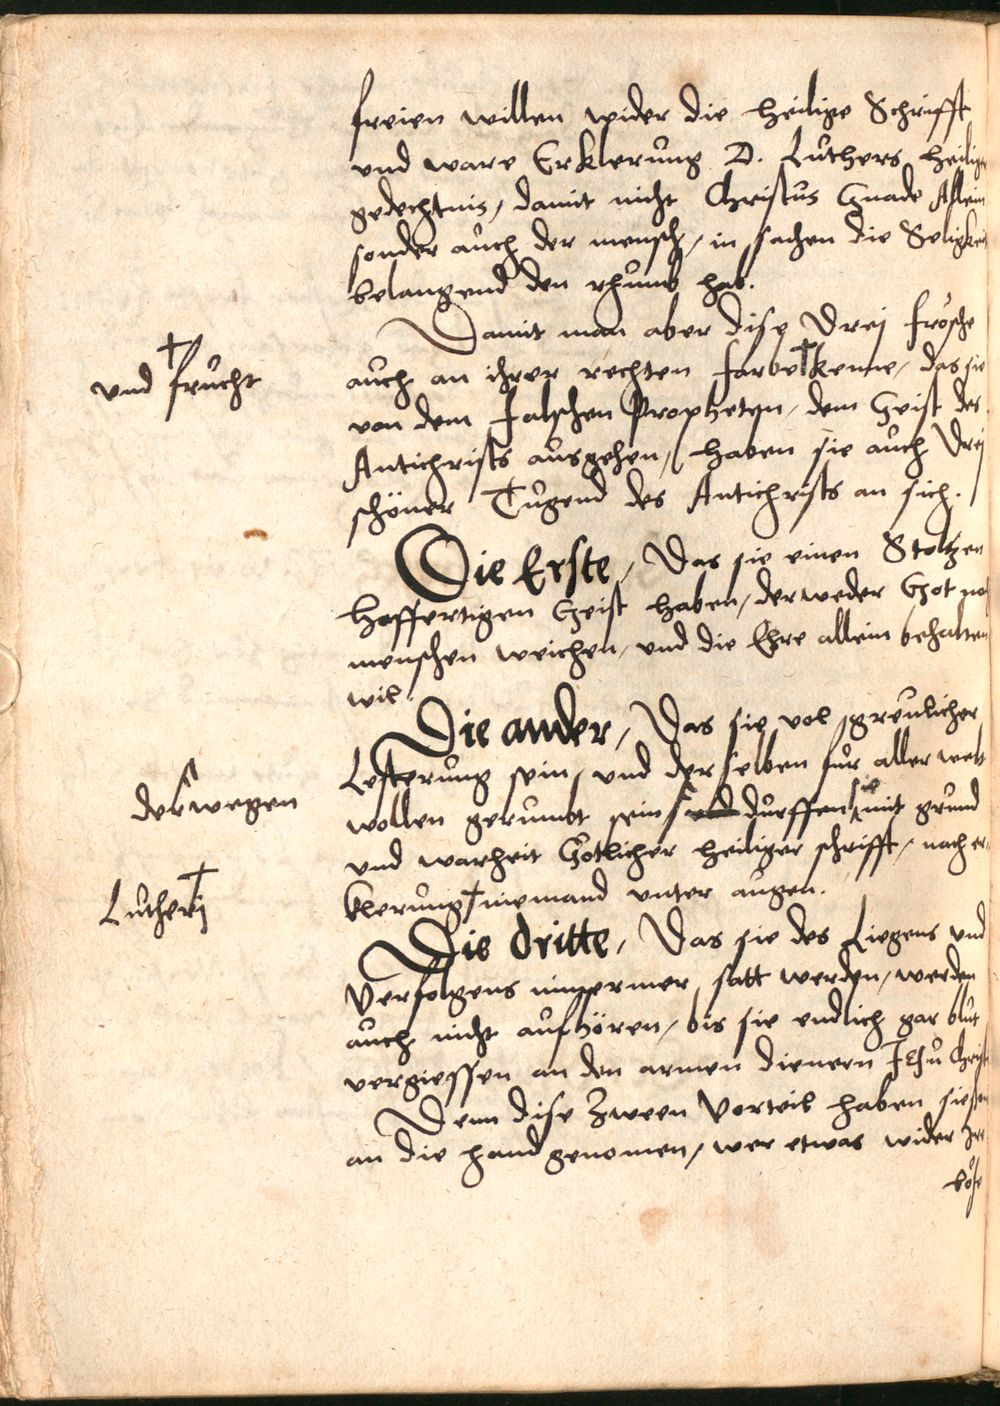 freien willen wider die heilige Schrifft
und ware Erklerung D. Luthers heilig
gedechtnis, damit nicht Christus Gnade Allein
sonder auch der mensch, in sachen die Seligkeit
belangend den rhumb hab.
Damit man aber dise Drej frösche
auch an ihrer rechten farbe † kenne, das sie
und † frucht
von dem falschen Propheten, dem Geist des
Antichrists ausgehen, haben sie auch Drej
schöner Tugend des Antichrists an sich.
Die Erste, Das sie einen Stoltzen
Hoffertigen Geist haben, der weder Got no
menschen weichen, und die Ehre allein behalten
wil.
Die ander, Das sie vol greulicher
Lesterung sein, und derselben für aller welt
wollen gerumbt sein, und durffen sie mit grund
deswegen
und warheit Gotlicher heiliger schrifft, nach er-
klerung † niemand unter augen.
† Lutheri
Die dritte, Das sie des Liegens und
Verfolgens nimmermer satt werden, werden
auch nicht aufhören, bis sie endlich gar blut
vergiessen an den armen dienern JEsu Christi
Denn dise Zween Vorteil haben sie
an die hand genomen, wer etwas wider
böse